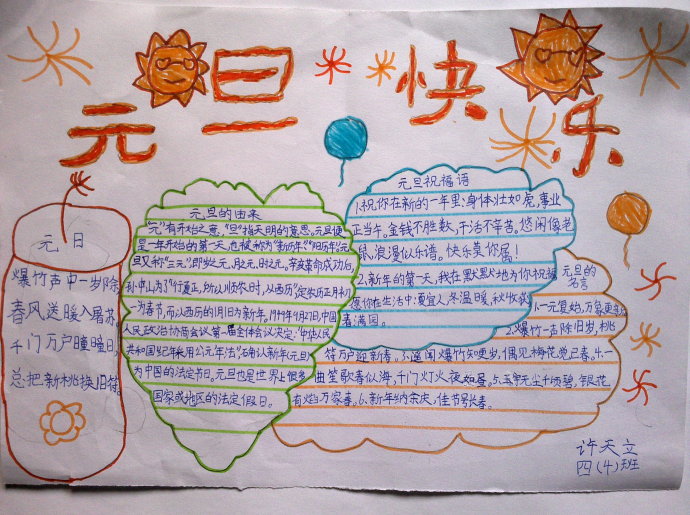 元旦快乐
元日
爆竹声中一岁除
春风送暖入屠苏。
千门万户曈曈日,
总把新桃换旧符。
元旦的由来
"元"有开始之意,"旦"指天明的意思。元旦便
是一年开始的第一天,也被称为"新历年""阳历年"。元
旦又称"三元",即岁之元,月之元,时之元。辛亥革命成功后,
孙中山为了"行夏正,所以顺农时,从西历",定农历正月初一
为春节,而以西历的1月1日为新年,1949年9月27日,中国
人民政治协商会议第一届全体会议决定:"中华人民
共和国纪年采用公元年法",确认新年元旦
为中国的法定节日。元旦也是世界上很多
国家或地区的法定假日。
元旦祝福语
1.祝你在新的一年里:身体壮如虎,事业
正当午。金钱不胜数,干活不辛苦。悠闲像老
鼠,浪漫似乐谱。快乐莫你属!
2.新年的第一天,我在默默地为你祝福
愿你在生活中:夏宜人,冬温暖,秋收获
春满园。
元旦的
名言
1.一元复始,万象更新
2.爆竹一古除旧岁,桃
符万户迎新春。3.遥闻爆竹知更岁,偶见梅花觉已春。4.一
曲笙歌春似海,千门灯火夜如昼。5.玉宇无尘千顷碧,银花
有焰万家春。6.新年纳余庆,佳节号长春。
许天立
四(4)班